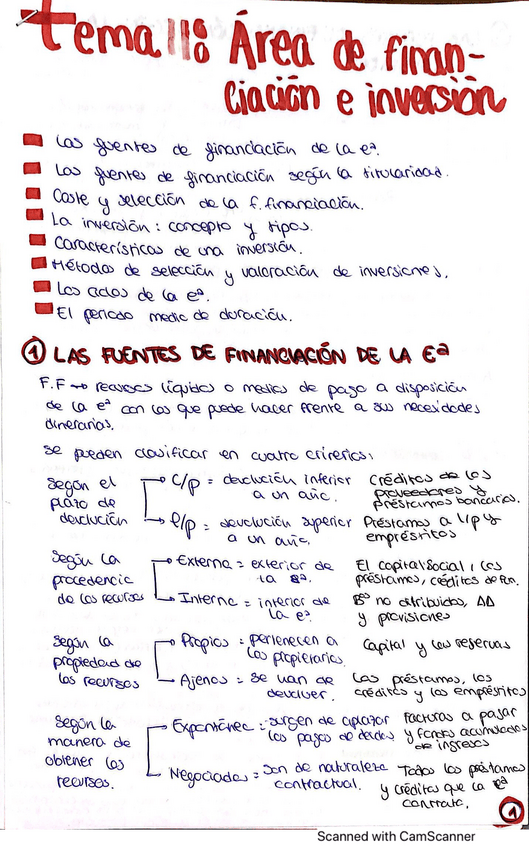 Tema 11: Área de finan-
ciación e inversión
Las fuentes de financiación de la eª.
Las fuentes de financiación según la titularidad.
Coste y selección de la f. financiación.
La inversión: concepto y tipos.
Características de una inversión.
Métodos de selección y valoración de inversiones.
Los ciclos de la eª.
El periodo medio de duración.
1 LAS FUENTES DE FINANCIACIÓN DE LA Eª
F.F → recursos líquidos o medios de pago a disposición
de la eª con los que puede hacer frente a sus necesidades
dinerarias.
Se pueden clasificar en cuatro criterios:
Según el
plazo de
devolución
C/p = devolución inferior
a un año.
Créditos de los
proveedores y
préstamos bancarios.
l/p = devolución superior
a un año.
Préstamos a l/p y
empréstitos
Según la
procedencia
de los recursos
Externa = exterior de
la eª.
El capital social, los
préstamos, créditos de fun.
Interna = interior de
la eª.
Bº no distribuidos, AA
y provisiones
Según la
propiedad de
los recursos
Propios = pertenecen a
los propietarios.
Capital y las reservas
Ajenos = se han de
devolver.
Los préstamos, los
créditos y los empréstitos
Según la
manera de
obtener los
recursos.
Espontánea = surgen de aplazar
los pagos de deudas
Facturas a pagar
y fondos acumulados
de ingresos
Negociados = Son de naturaleza
contractual.
Todos los préstamos
y créditos que la eª
contrate.
1
Scanned with CamScanner